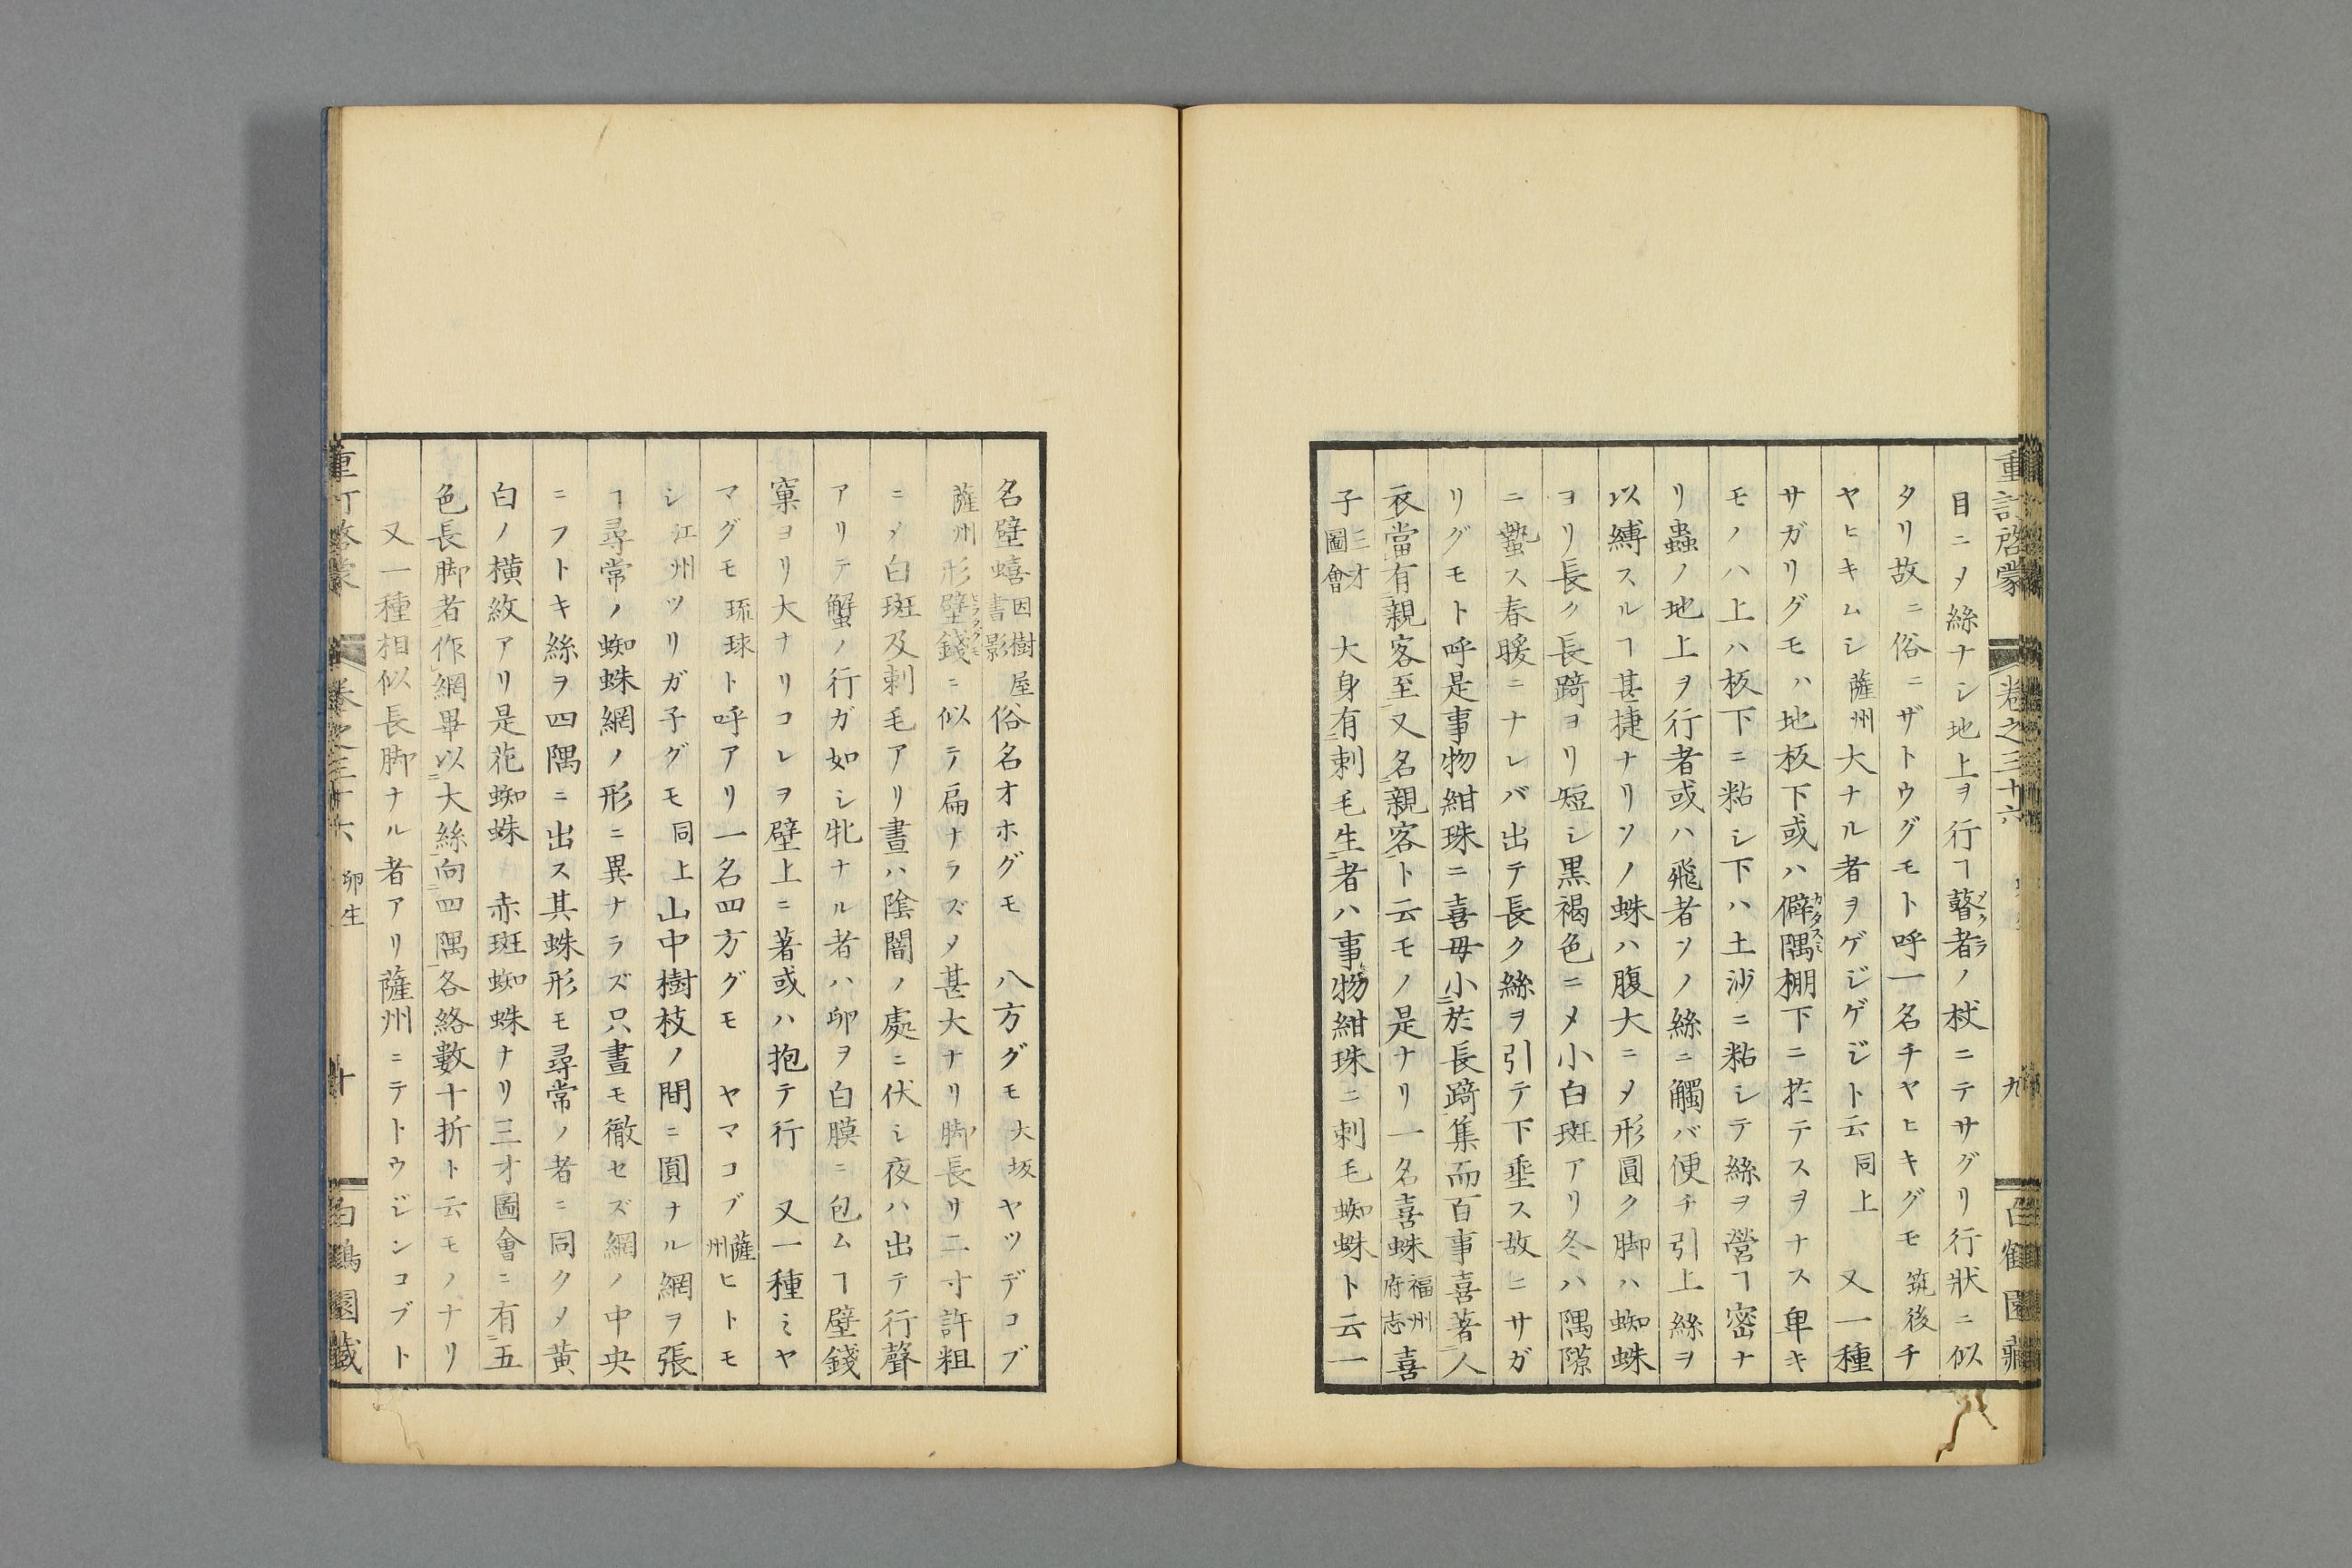 重訂啓蒙 卷之三十六 九 白鶴園藏
目ニメ絲ナシ地上ヲ行ヿ瞽者ノ杖ニテサグリ行狀ニ似
タリ故ニ俗ニザトウグモト呼一名チヤヒキグモ筑後チ
ヤヒキムシ薩州大ナル者ヲゲジゲジト云同上 又一種
サガリグモハ地板下或ハ僻隅カタスミ棚下ニ於テスヲナス卑キ
モノハ上ハ板下ニ粘シ下ハ土沙ニ粘シテ絲ヲ營ヿ密ナ
リ蟲ノ地上ヲ行者或ハ飛者ソノ絲ニ觸バ便チ引上絲ヲ
以縛スルヿ甚捷ナリソノ蛛ハ腹大ニメ形圓ク脚ハ蜘蛛
ヨリ長ク長踦ヨリ短シ黒褐色ニメ小白斑アリ冬ハ隅隙
ニ蟄ス春暖ニナレバ出テ長ク絲ヲ引テ下垂ス故ニサガ
リグモト呼是事物紺珠ニ喜母小於長踦集而百事喜著人
衣當有親客至又名親客ト云モノ是ナリ一名喜蛛福州府志喜
子三才圖會 大身有刺毛生者ハ事物紺珠ニ刺毛蜘蛛ト云一
名壁蟢因樹屋書影俗名オホグモ 八方グモ大坂ヤツデコブ
薩州形壁錢ニ似テ扁ナラズメ甚大ナリ脚長リ二寸許粗
ニメ白斑及刺毛アリ晝ハ陰闇ノ處ニ伏シ夜ハ出テ行聲
アリテ蟹ノ行ガ如シ牝ナル者ハ卵ヲ白膜ニ包ムヿ壁錢
窠ヨリ大ナリコレヲ壁上ニ著或ハ抱テ行 又一種ミヤ
マグモ琉球ト呼アリ一名四方グモ ヤマコブ薩州ヒトモ
シ江州ツリガ子グモ同上山中樹枝ノ間ニ圓ナル網ヲ張
ヿ尋常ノ蜘蛛網ノ形ニ異ナラズ只晝モ徹セズ網ノ中央
ニフトキ絲ヲ四隅ニ出ス其蛛形モ尋常ノ者ニ同クメ黄
白ノ横紋アリ是花蜘蛛 赤斑蜘蛛ナリ三才圖會ニ有五
色長脚者作網畢以大絲向四隅各絡數十折ト云モノナリ
又一種相似長脚ナル者アリ薩州ニテトウジンコブト
重訂啓蒙 卷之三十六 卵生 十 白鶴園藏